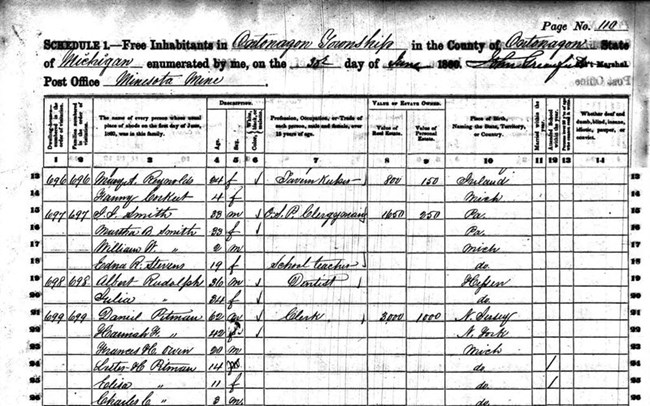 Page No. 110
SCHEDULE 1.—Free Inhabitants in Ontonagon Township in the County of Ontonagon State
of Michigan enumerated by me, on the day of June 1860. Ass't Marshal.
Post Office Minesota Mine
Dwelling-houses numbered in the order of visitation. Families numbered in the order of visitation. The name of every person whose usual place of abode on the first day of June, 1860, was in this family. DESCRIPTION. Age. Sex. Color. Profession, Occupation, or Trade of each person, male and female, over 15 years of age. VALUE OF ESTATE OWNED. Value of Real Estate. Value of Personal Estate. Place of Birth, Naming the State, Territory, or Country. Married within the year. Attended School within the year. Whether deaf and dumb, blind, insane, idiotic, pauper, or convict.
1 2 3 4 5 6 7 8 9 10 11 12 13 14
13 696 696 Mary A. Reynolds 24 f Tavern Keeper 800 150 Ireland 13
Fanny 4 f Mich
15 697 697 Smith 33 m O.S.P. Clergyman 1650 250 Pa. 15
16 Martha B Smith 33 f Pa. 16
17 William W " 2 m Mich 17
18 Edna R. Stevens 19 f School teacher do. 18
19 698 698 Albert Rudolph 36 m Dentist Hessen 19
20 Julia " 24 f do 20
21 699 699 Daniel Pitman 62 m Clerk 3000 1000 N Jersey 21
22 Hannah " 42 f N. York 22
23 Frances H. Owen 20 m Mich 23
24 Pitman 14 do. / 24
25 Eliza " 11 f do / 25
26 Charles C " 3 m do. 26